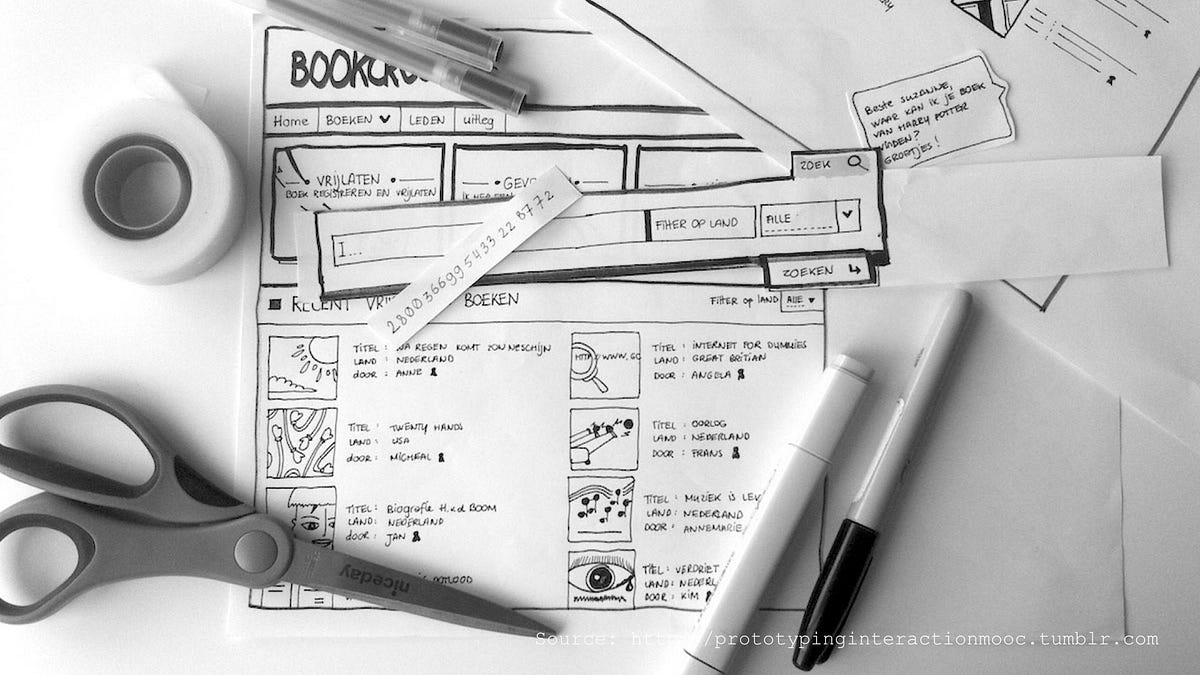 BOOKCRO
Home BOEKEN LEDEN uitleg
VRIJLATEN
BOEK REGISTREREN EN VRIJLATEN
GEVO
ZOEK
I...
FILTER OP LAND
ALLE
ZOEKEN
28003669954332287 72
Beste SUZANNE,
WAAR KAN IK JE BOEK
VAN HARRY POTTER
VINDEN?
GROETJES!
RECENT VRIJ BOEKEN
Filter op land ALLE
TITEL : NA REGEN KOMT ZONNESCHIJN
LAND : NEDERLAND
DOOR : ANNE
TITEL : TWENTY HANDS
LAND : USA
DOOR : MICHEAL
TITEL : Biografie H.v.d BOOM
LAND : NEDERLAND
DOOR : JAN
WWW.GO
TITEL : INTERNET FOR DUMMIES
LAND : GREAT BRITIAN
DOOR : ANGELA
TITEL : OORLOG
LAND : NEDERLAND
DOOR : FRANS
TITEL : MUZIEK IS LEV
LAND : NEDERLAND
DOOR : ANNEMARIE
TITEL : VERDRIET
LAND : NEDERL
DOOR : KIM
niceday
Source: http://prototypinginteractionmooc.tumblr.com